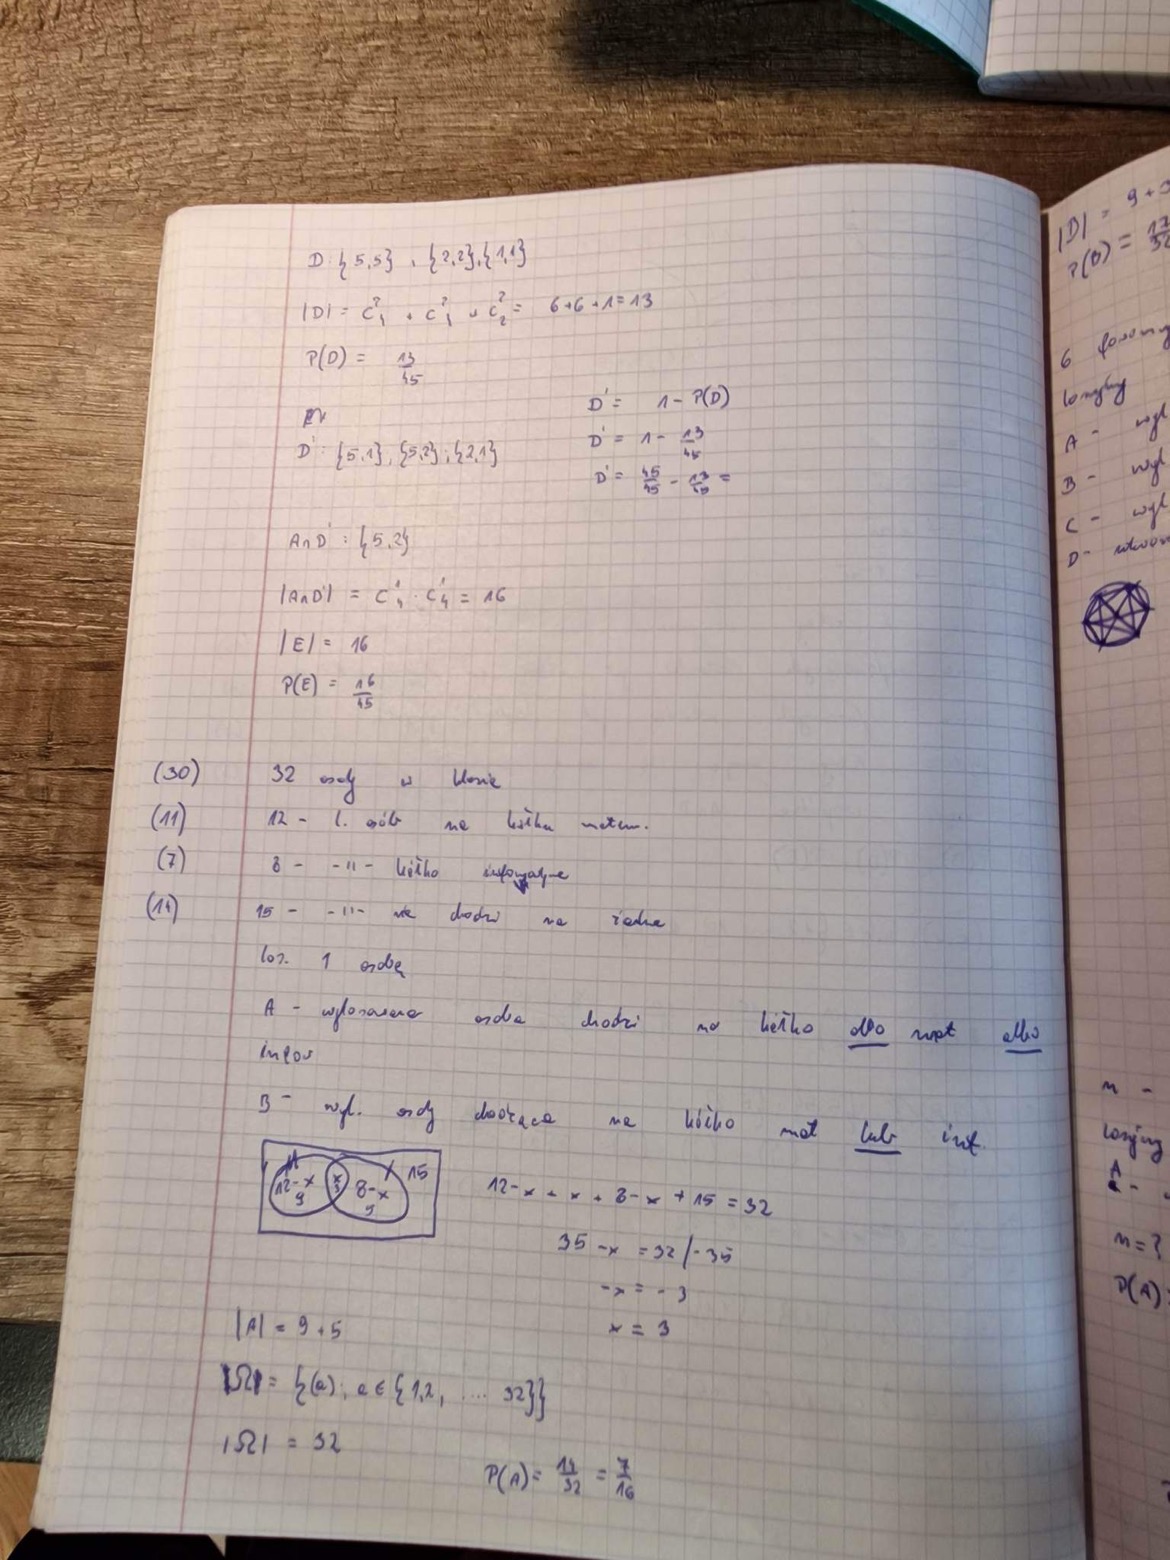 D: {5,5} , {2,2},{1,1}
|D| = C²₄ + C²₄ + C²₂ = 6+6+1=13
P(D) = 13/45
D': {5,1}, {5,2}, {2,1}
D' = 1 - P(D)
D' = 1 - 13/45
D' = 45/45 - 13/45 =
A∩D' : {5,2}
|A∩D'| = C¹₄ · C¹₄ = 16
|E| = 16
P(E) = 16/45
(30) 32 osoby w klasie
(11) 12 - l. osób na kółku matem.
(7) 8 - -11- kółko informatyczne
(14) 15 - -11- nie chodzi na żadne
los. 1 osobę
A - wylosowana osoba chodzi na kółko albo mat albo
infor
B - wyl. osoby chodząca na kółko mat lub inf.
12-x x 8-x 15
9 3 5
12-x + x + 8-x + 15 = 32
35 -x = 32 /-35
-x = -3
x = 3
|A| = 9+5
|Ω| = {(a); a ∈ {1,2, .... 32}}
|Ω| = 32
P(A) = 14/32 = 7/16
|D| = 9+
P(B) = 17/32
6
losujemy
A - wyl
B - wyl
C - wyl
D -
n -
losujemy
A -
n = ?
P(A)